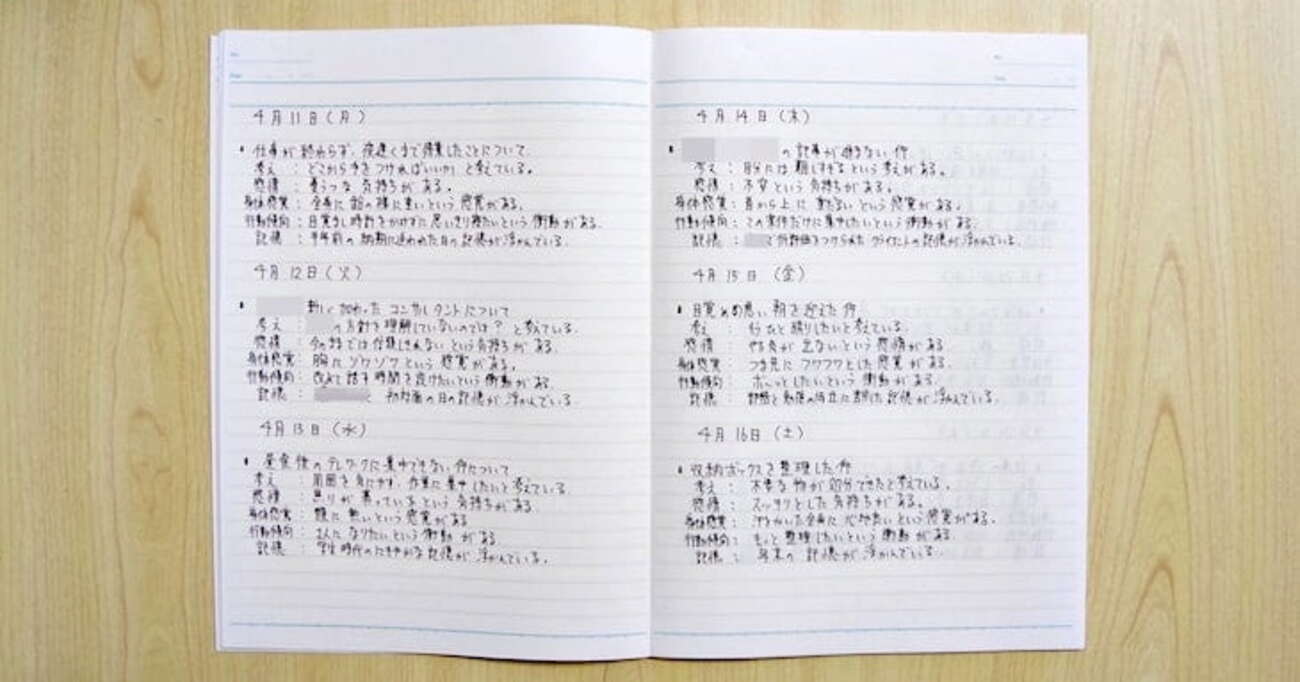 4月11日(月)
仕事が終わらず、夜遅くまで残業したことについて
考え:どこから手をつければいいか、と考えている。
感情:憂うつな気持ちがある。
身体感覚:全身に鉛の様に重いという感覚がある。
行動傾向:目覚まし時計をかけずに思いきり寝たいという衝動がある。
記憶:半年前の納期に追われた日の記憶が浮かんでいる。
4月12日(火)
新しく加わったコンサルタントについて
考え:の方針を理解していないのでは?と考えている。
感情:今のままでは信頼しきれないという気持ちがある。
身体感覚:胸にゾワゾワという感覚がある。
行動傾向:改めて話す時間を設けたいという衝動がある。
記憶:と初対面の日の記憶が浮かんでいる。
4月13日(水)
昼食後のテレワークに集中できない件について
考え:周囲を気にせず、作業に集中したいと考えている。
感情:焦りが募っているという気持ちがある。
身体感覚:頭に熱いという感覚がある
行動傾向:1人になりたいという衝動がある。
記憶:学生時代のにぎやかな記憶が浮かんでいる。
4月14日(木)
の記事が書きない件
考え:自分には難しすぎるという考えがある。
感情:不安という気持ちがある。
身体感覚:首から上に重だるいという感覚がある。
行動傾向:この案件だけに集中したいという衝動がある。
記憶:で低評価をつけられたクライアントの記憶が浮かんでいる。
4月15日(金)
目覚めの悪い朝を迎えた件
考え:もうひと眠りしたいと考えている。
感情:やる気が出ないという感情がある。
身体感覚:つま先にフワフワとした感覚がある。
行動傾向:ボーっとしたいという衝動がある。
記憶:記憶が浮かんでいる。
4月16日(土)
収納ボックスを整理した件
考え:不要な物が処分できたと考えている。
感情:スッキリとした気持ちがある。
身体感覚:汗をかいた全身に心地よいという感覚がある。
行動傾向:もっと整理したいという衝動がある。
記憶:年末の記憶が浮かんでいる。